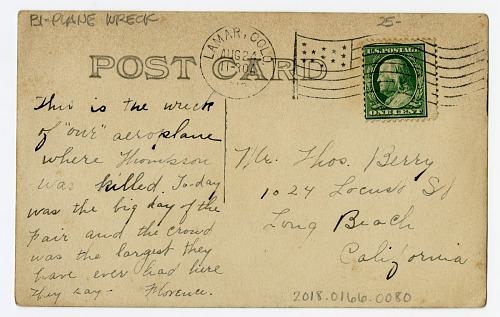 BI-PLANE WRECK
25-
LAMAR, COLO.
AUG 24
U.S. POSTAGE
ONE CENT
POST CARD
This is the wreck
of "our" aeroplane
where Thompson
was killed. To-day
was the big day of the
Fair and the crowd
was the largest they
have ever had here
they say. Florence.
Mr. Thos. Berry
1024 Locust St
Long Beach
California
2018.0166.0080